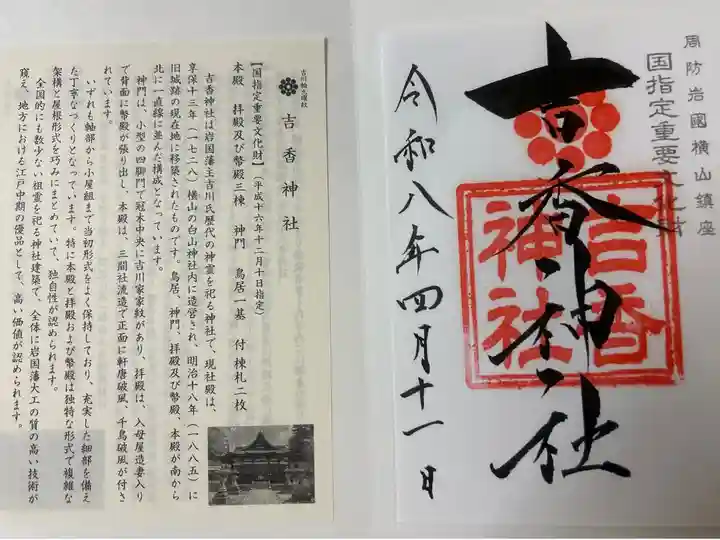 周防岩國横山鎮座
国指定重要文化財
吉香神社
吉香神社
令和八年四月十一日
吉香神社
【国指定重要文化財】(平成十六年十二月十日指定)
本殿 拝殿及び幣殿三棟 神門 鳥居一基 付 棟札二枚
吉香神社は岩国藩主吉川氏歴代の神霊を祀る神社で、現社殿は、
享保十三年(一七二八)横山の白山神社内に造営され、明治十八年(一八八五)に
旧城跡の現在地に移築されたものです。鳥居、神門、拝殿及び幣殿、本殿が南から
北に一直線に並んだ構成となっています。
神門は、小型の四脚門で冠木中央に吉川家家紋があり、拝殿は、入母屋造妻入り
で背面に幣殿が張り出し、本殿は、三間社流造で正面に軒唐破風、千鳥破風が付き
れています。
いずれも軸部から小屋組まで当初形式をよく保持しており、充実した細部を備え
た丁寧なつくりとなっています。特に本殿と拝殿および幣殿は独特な形式で複雑な
架構と屋根形式を巧みにまとめていて、独自性が認められます。
全国的にも数少ない祖霊を祀る神社建築で、全体に岩国藩大工の質の高い技術が
窺え、地方における江戸中期の優品として、高い価値が認められます。